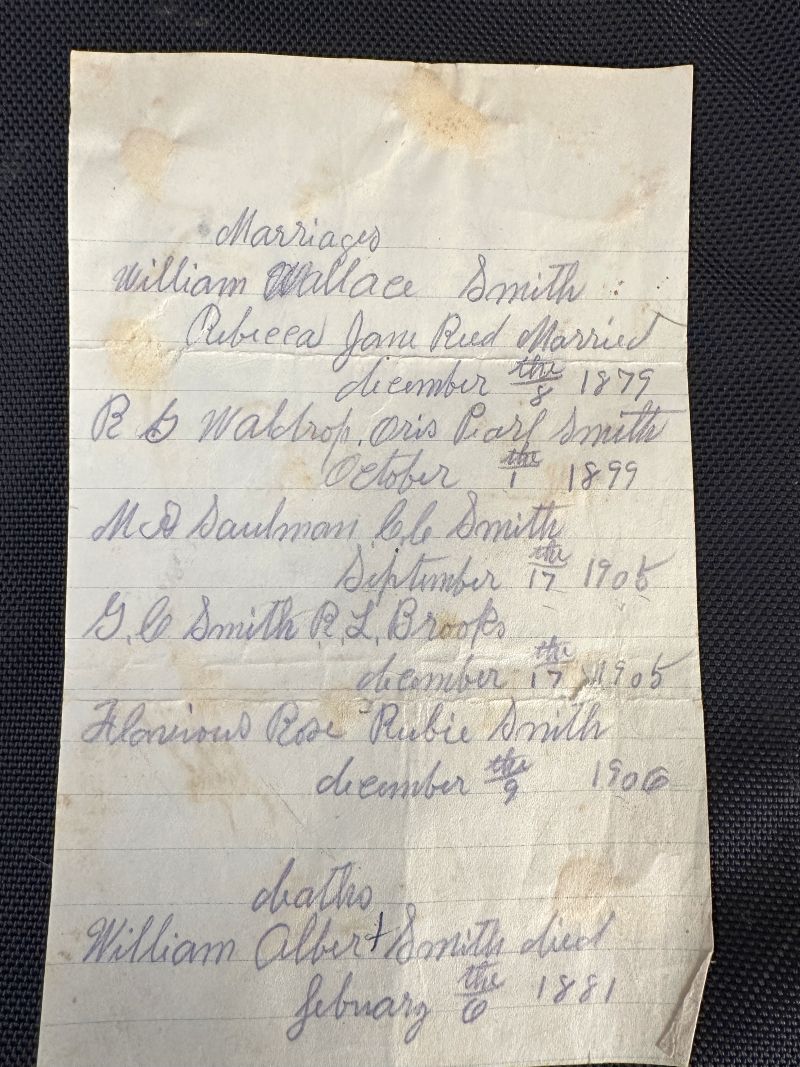 Marriages
William Wallace Smith
Rebecca Jane Reed Married
december the 8 1879
R G Waldrop, Oris Pearl Smith
October the 1 1899
M A Saulman C,C Smith
September the 17 1905
G, C Smith R, L, Brooks
december the 17 1905
Rose Rubie Smith
december the 9 1906
deaths
William Albert Smith died
febuary the 6 1881